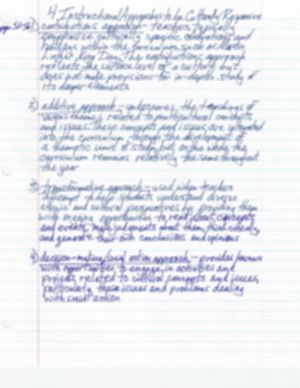 4 Instructional Approaches to be Culturally Responsive
1) contributions approach - teachers typically
emphasize culturally specific celebrations and
holidays within the curriculum such as Martin
Luther King Day. The contributions approach
reflects the surface level of a culture but
does not make provisions for in-depth study of
its deeper elements
2) additive approach - underscores the teachings of
various themes related to multicultural concepts
and issues. These concepts and issues are integrated
into the curriculum through the development of
a thematic unit of study but on the whole the
curriculum remains relatively the same throughout
the year
3) transformative approach - used when teachers
attempt to help students understand diverse
ethnic and cultural perspectives by providing them
with ongoing opportunities to read about concepts
and events, make judgments about them, think critically
and generate their own conclusions and opinions
4) decision-making/social action approach - provides learners
with opportunities to engage in activities and
projects related to cultural concepts and issues,
particularly those issues and problems dealing
with social action